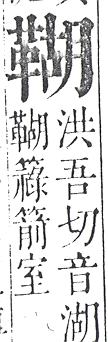 䩴
洪吾切音湖
䩴簶箭室